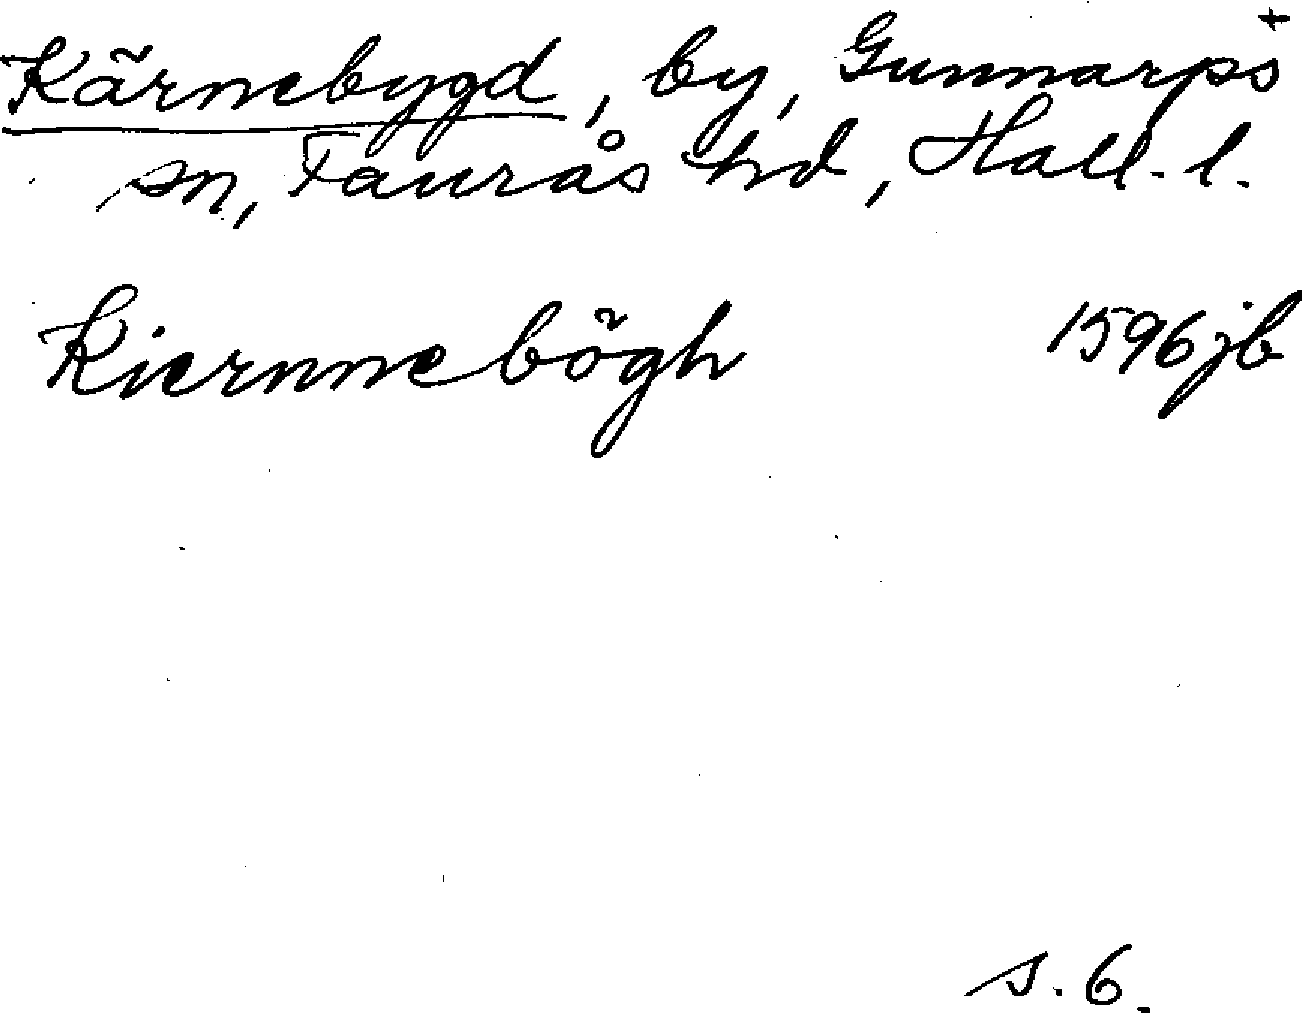 Kärnebygd, by, Gunnarps +
sn, Faurås hd, Hall. l.
Kiernnebögh 1596 jb
s. 6.